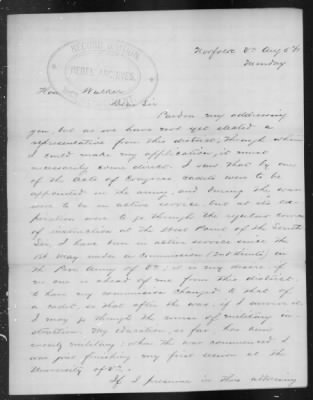 RECORD DIVISION
REBEL ARCHIVES
Norfolk Va Aug 5th
Monday
Hon Walker
Dear Sir
Pardon my addressing
you, but as we have not yet elected a
representative from this district, through whom
I could make my application, it must
necessarily come direct. I saw that by one
of the Acts of Congress cadets were to be
appointed in the army, and during the war
were to be in active service, but at its ex-
piration were to go through the regular course
of instruction at the West Point of the South
Sir, I have been in active service since the
1st May under a Commission (2nd Lieut) in
the Pro. Army of Va; it is my desire, if
no one is ahead of me from this district
to have my commission changed to that of
a cadet, so that after the war, if I survive it,
I may go through the course of military in-
struction. My education, so far, has been
military; when the war commenced I
was just finishing my first session at the
University of Va.
If I presume in thus addressing